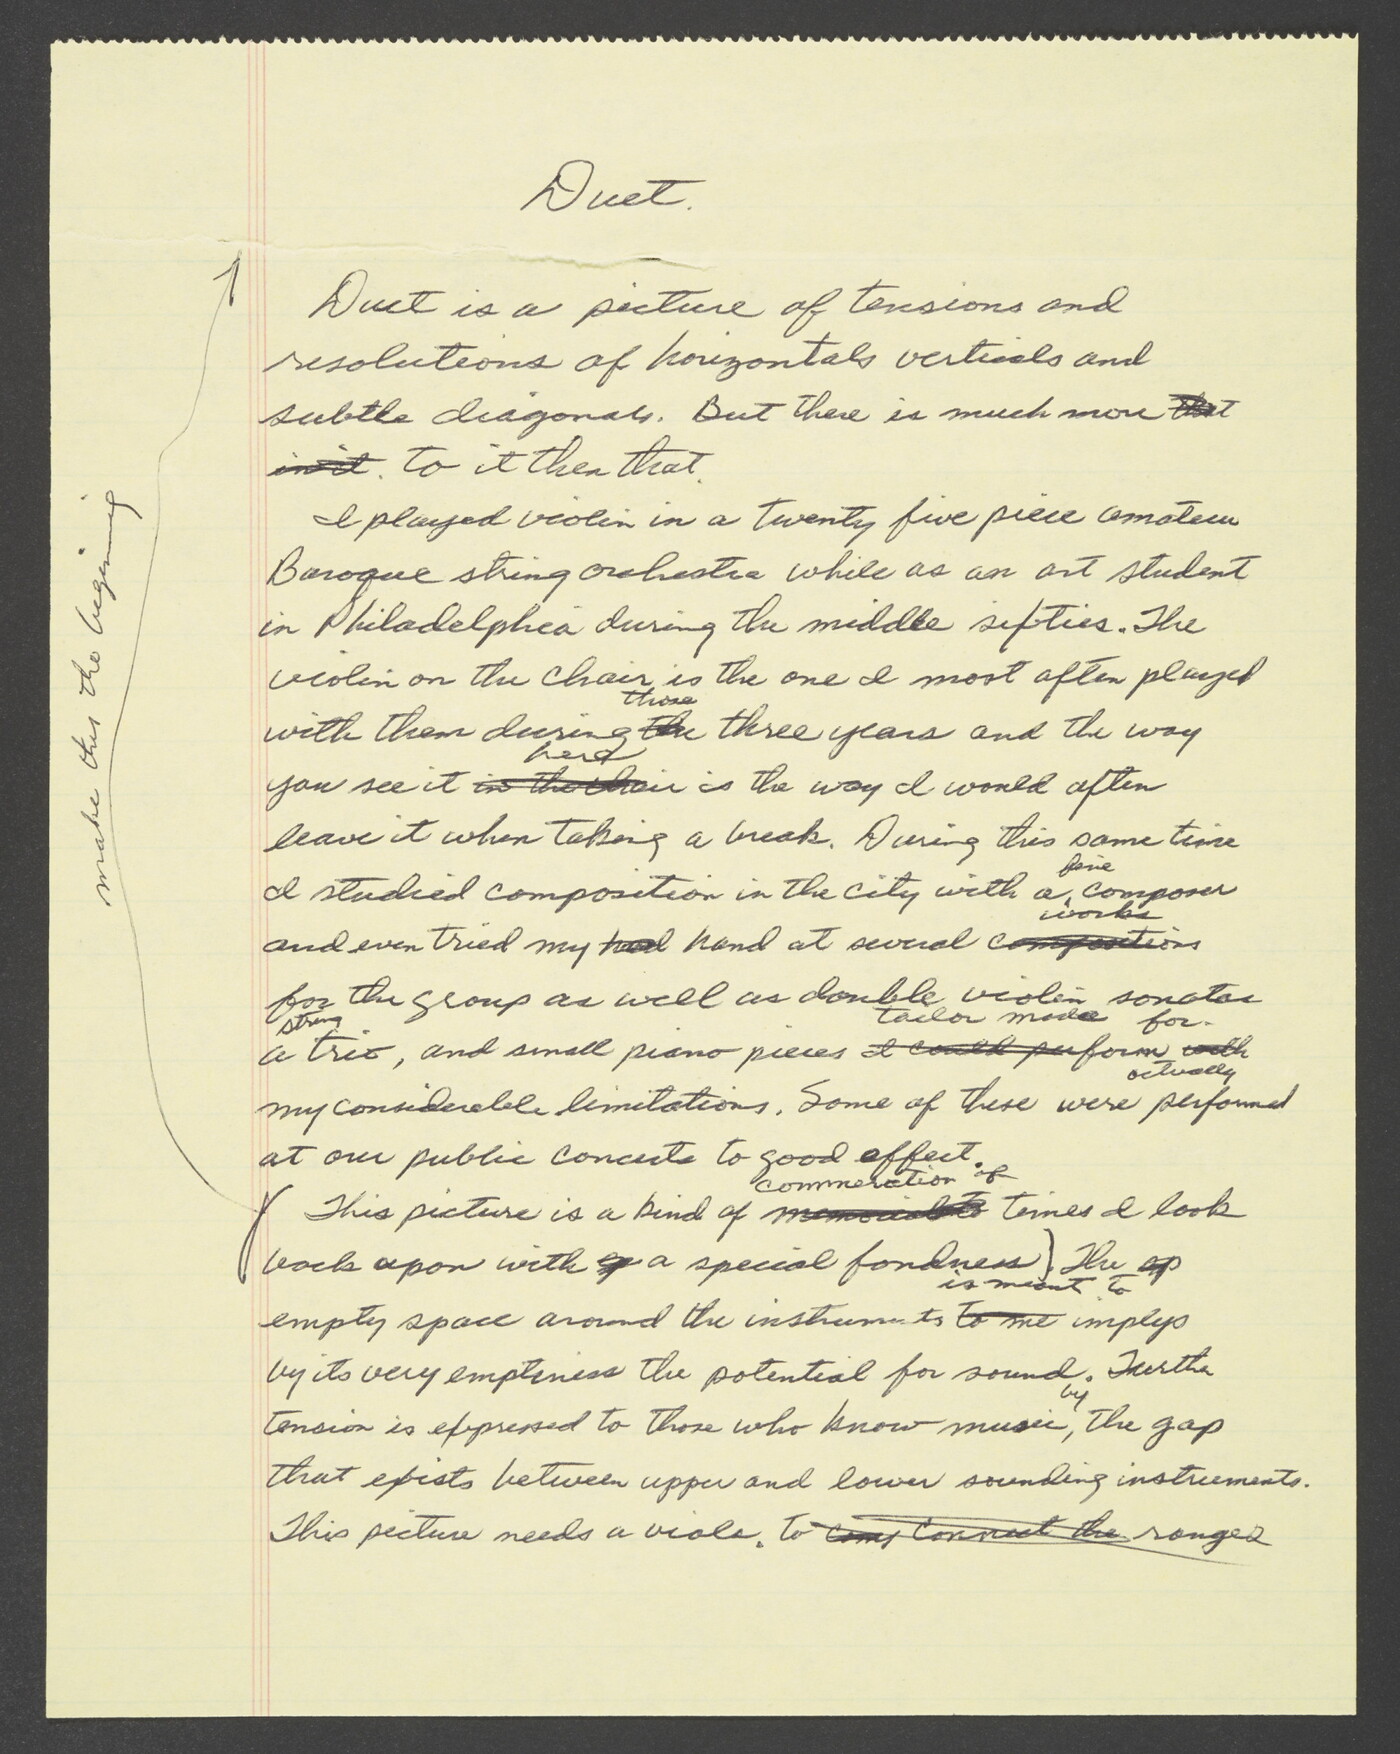 Duet.
Duet is a picture of tensions and
resolutions of horizontals verticals and
subtle diagonals. But there is much more that
in it. to it then that.
I played violin in a twenty five piece amateur
Baroque string orchestra while as an art student
in Philadelphia during the middle sixties. The
violin on the chair is the one I most often played
those
with them during the three years and the way
here
you see it in the chair is the way I would often
leave it when taking a break. During this same time
fine
I studied composition in the city with a, composer
works
and even tried my hand at several compositions
for the group as well as double violin sonatas
string tailor made for
a trio, and small piano pieces I could perform with
actually
my considerable limitations. Some of these were performed
at our public concerts to good effect.
commeration of
(This picture is a kind of memorial to times I look
back upon with a special fondness) The
is meant to
empty space around the instruments to me implys
by its very emptiness the potential for sound. Further
by
tension is expressed to those who know music, the gap
that exists between upper and lower sounding instruments.
This picture needs a viola. to connect the ranges
make this the beginning